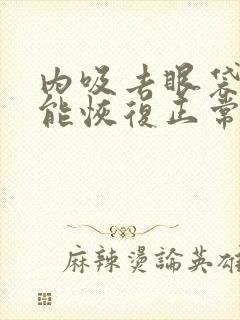 内吸去眼袋
能恢復正常
麻辣燙論英雄